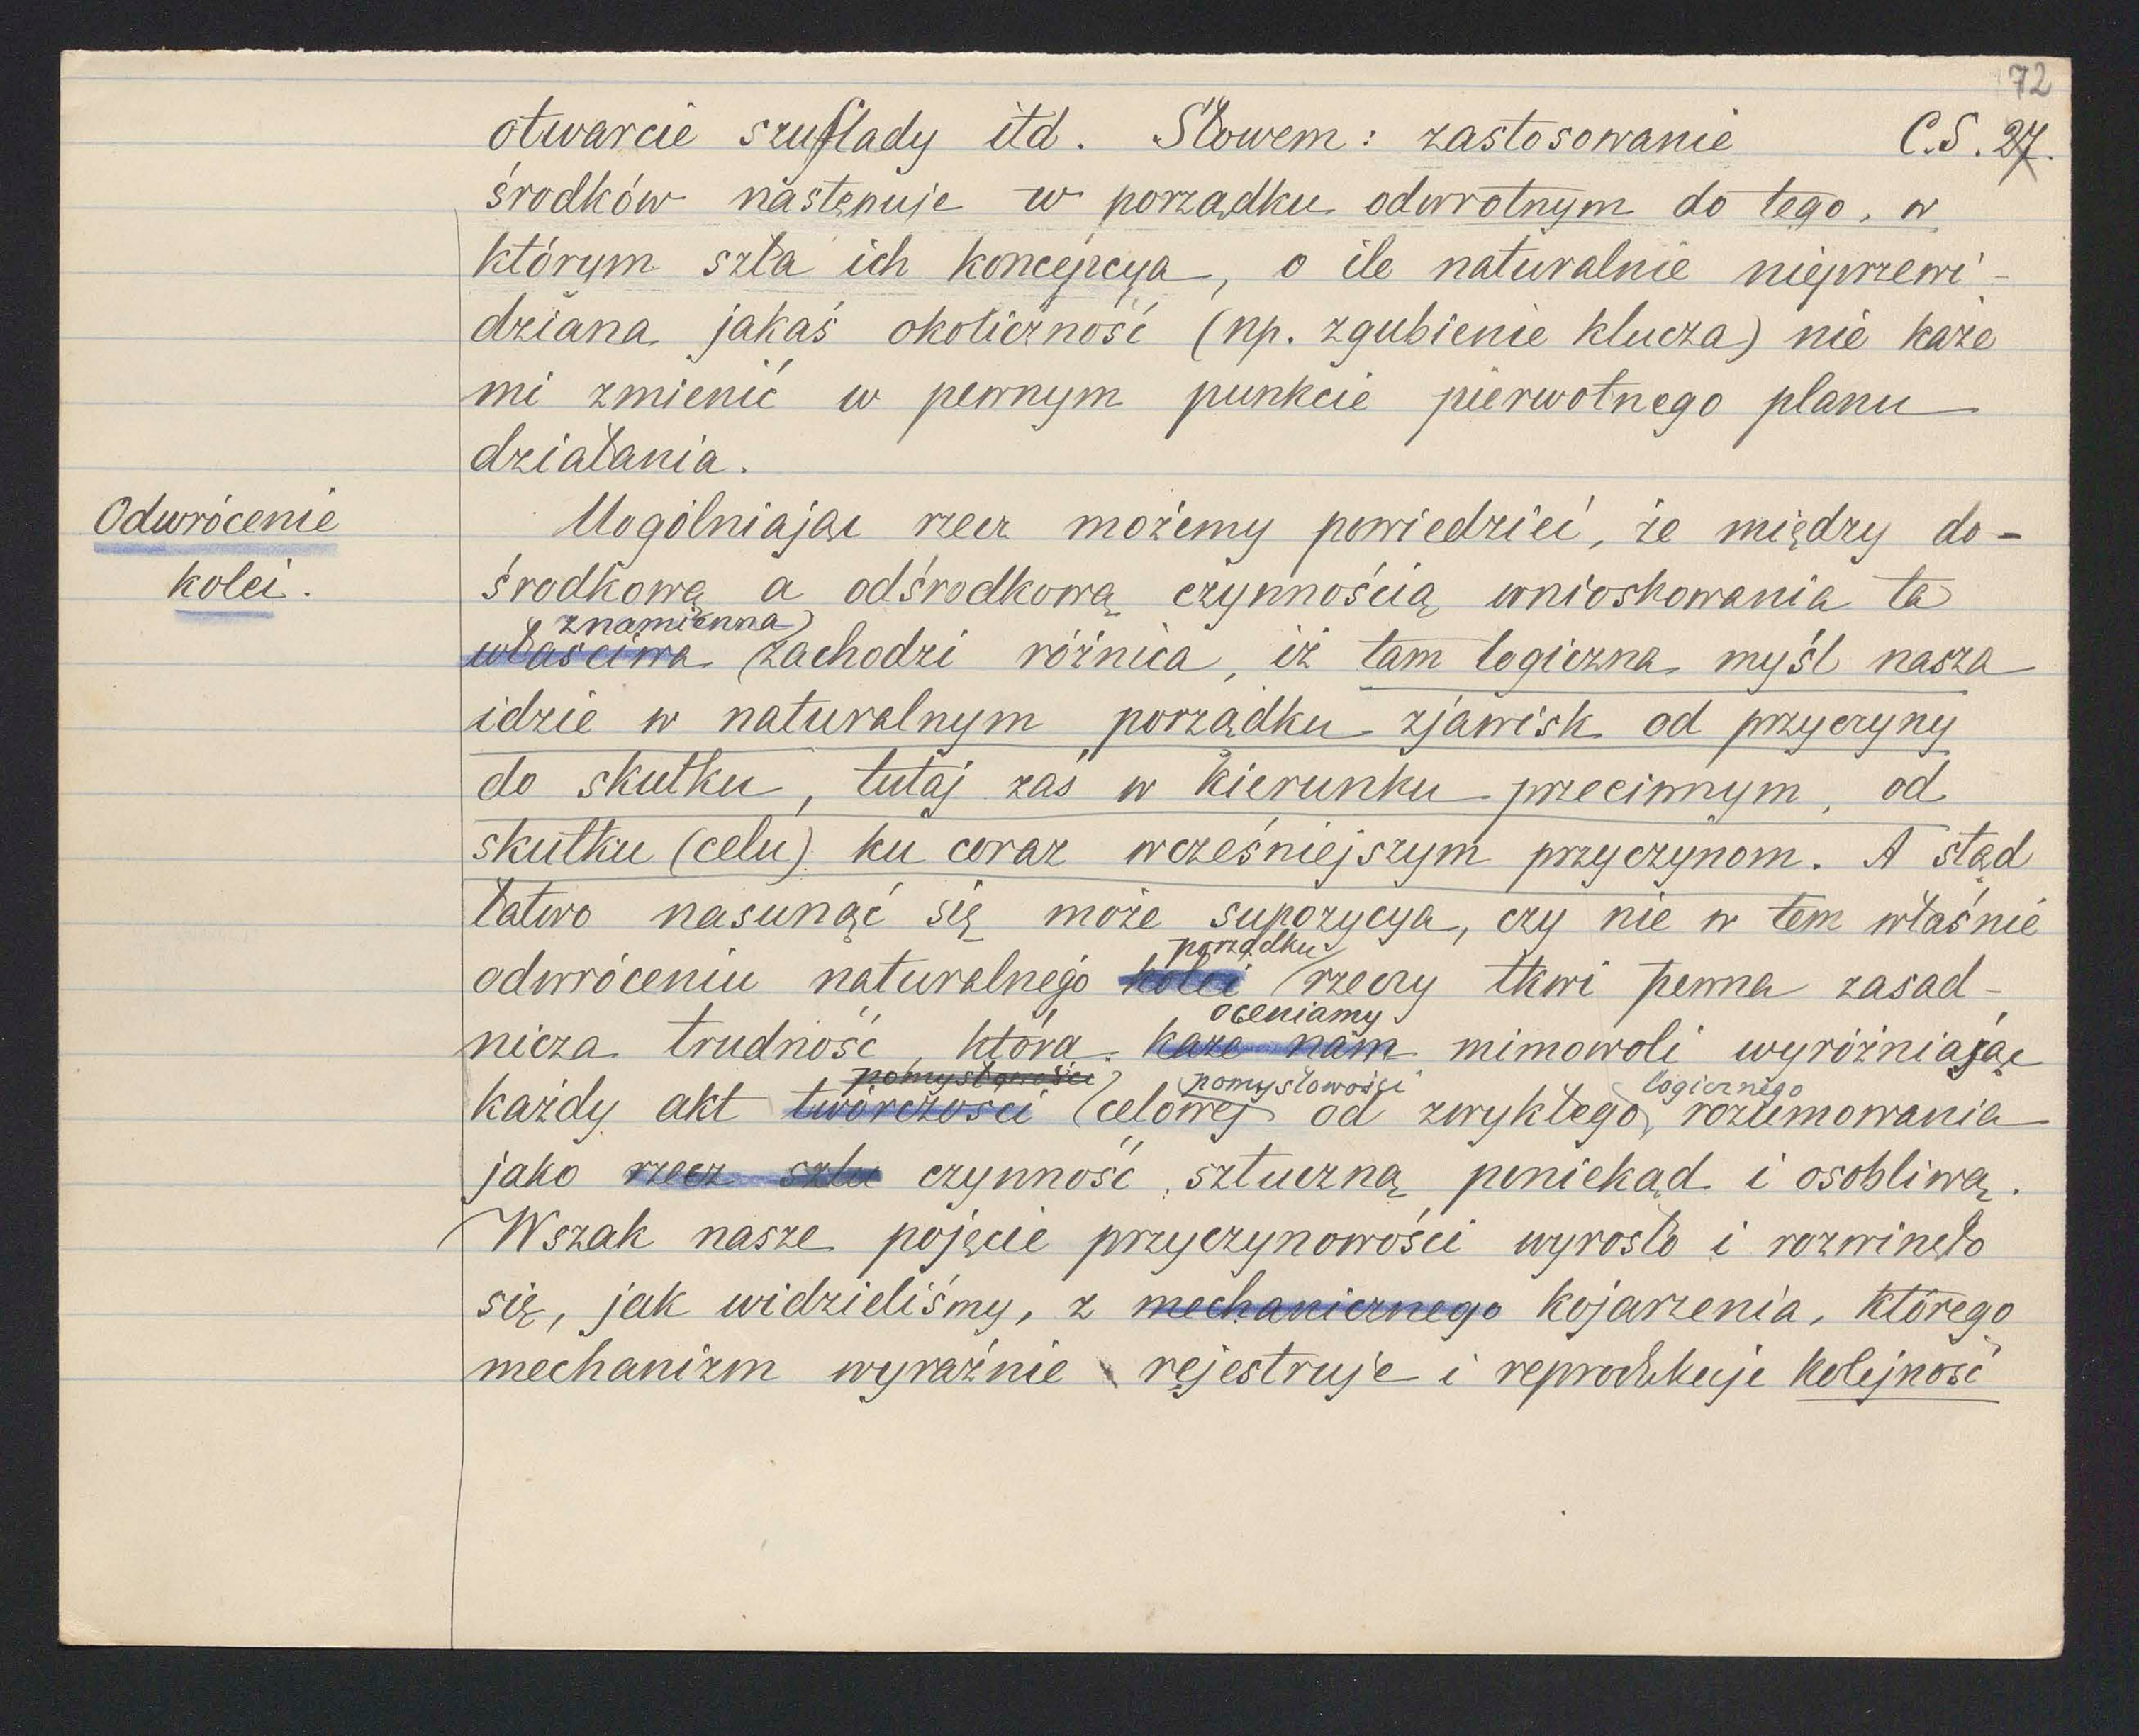 72
otwarcie szuflady itd. Słowem: zastosowanie C.S. 27.
środków następuje w porządku odwrotnym do tego, w
którym szła ich koncepcya, o ile naturalnie nieprzewi-
dziana jakaś okoliczność (np. zgubienie klucza) nie każe
mi zmienić w pewnym punkcie pierwotnego planu
działania.
Odwrócenie
kolei.
Uogólniając rzecz możemy powiedzieć, że między do-
środkową a odśrodkową czynnością wnioskowania ta
znamienna
właściwa zachodzi różnica, iż tam logiczna myśl nasza
idzie w naturalnym porządku zjawisk od przyczyny
do skutku, tutaj zaś w kierunku przeciwnym, od
skutku (celu) ku coraz wcześniejszym przyczynom. A stąd
łatwo nasunąć się może supozycya, czy nie w tem właśnie
porządku
odwróceniu naturalnego kolei rzeczy tkwi pewna zasad-
oceniamy
nicza trudność, którą każe nam mimowoli wyróżniając
pomysłowości pomysłowości logicznego
każdy akt twórczości celowej od zwykłego rozumowania
jako rzecz sztu czynność sztuczną poniekąd i osobliwą.
Wszak nasze pojęcie przyczynowości wyrosło i rozwinęło
się, jak widzieliśmy, z mechanicznego kojarzenia, którego
mechanizm wyraźnie rejestruje i reprodukuje kolejność